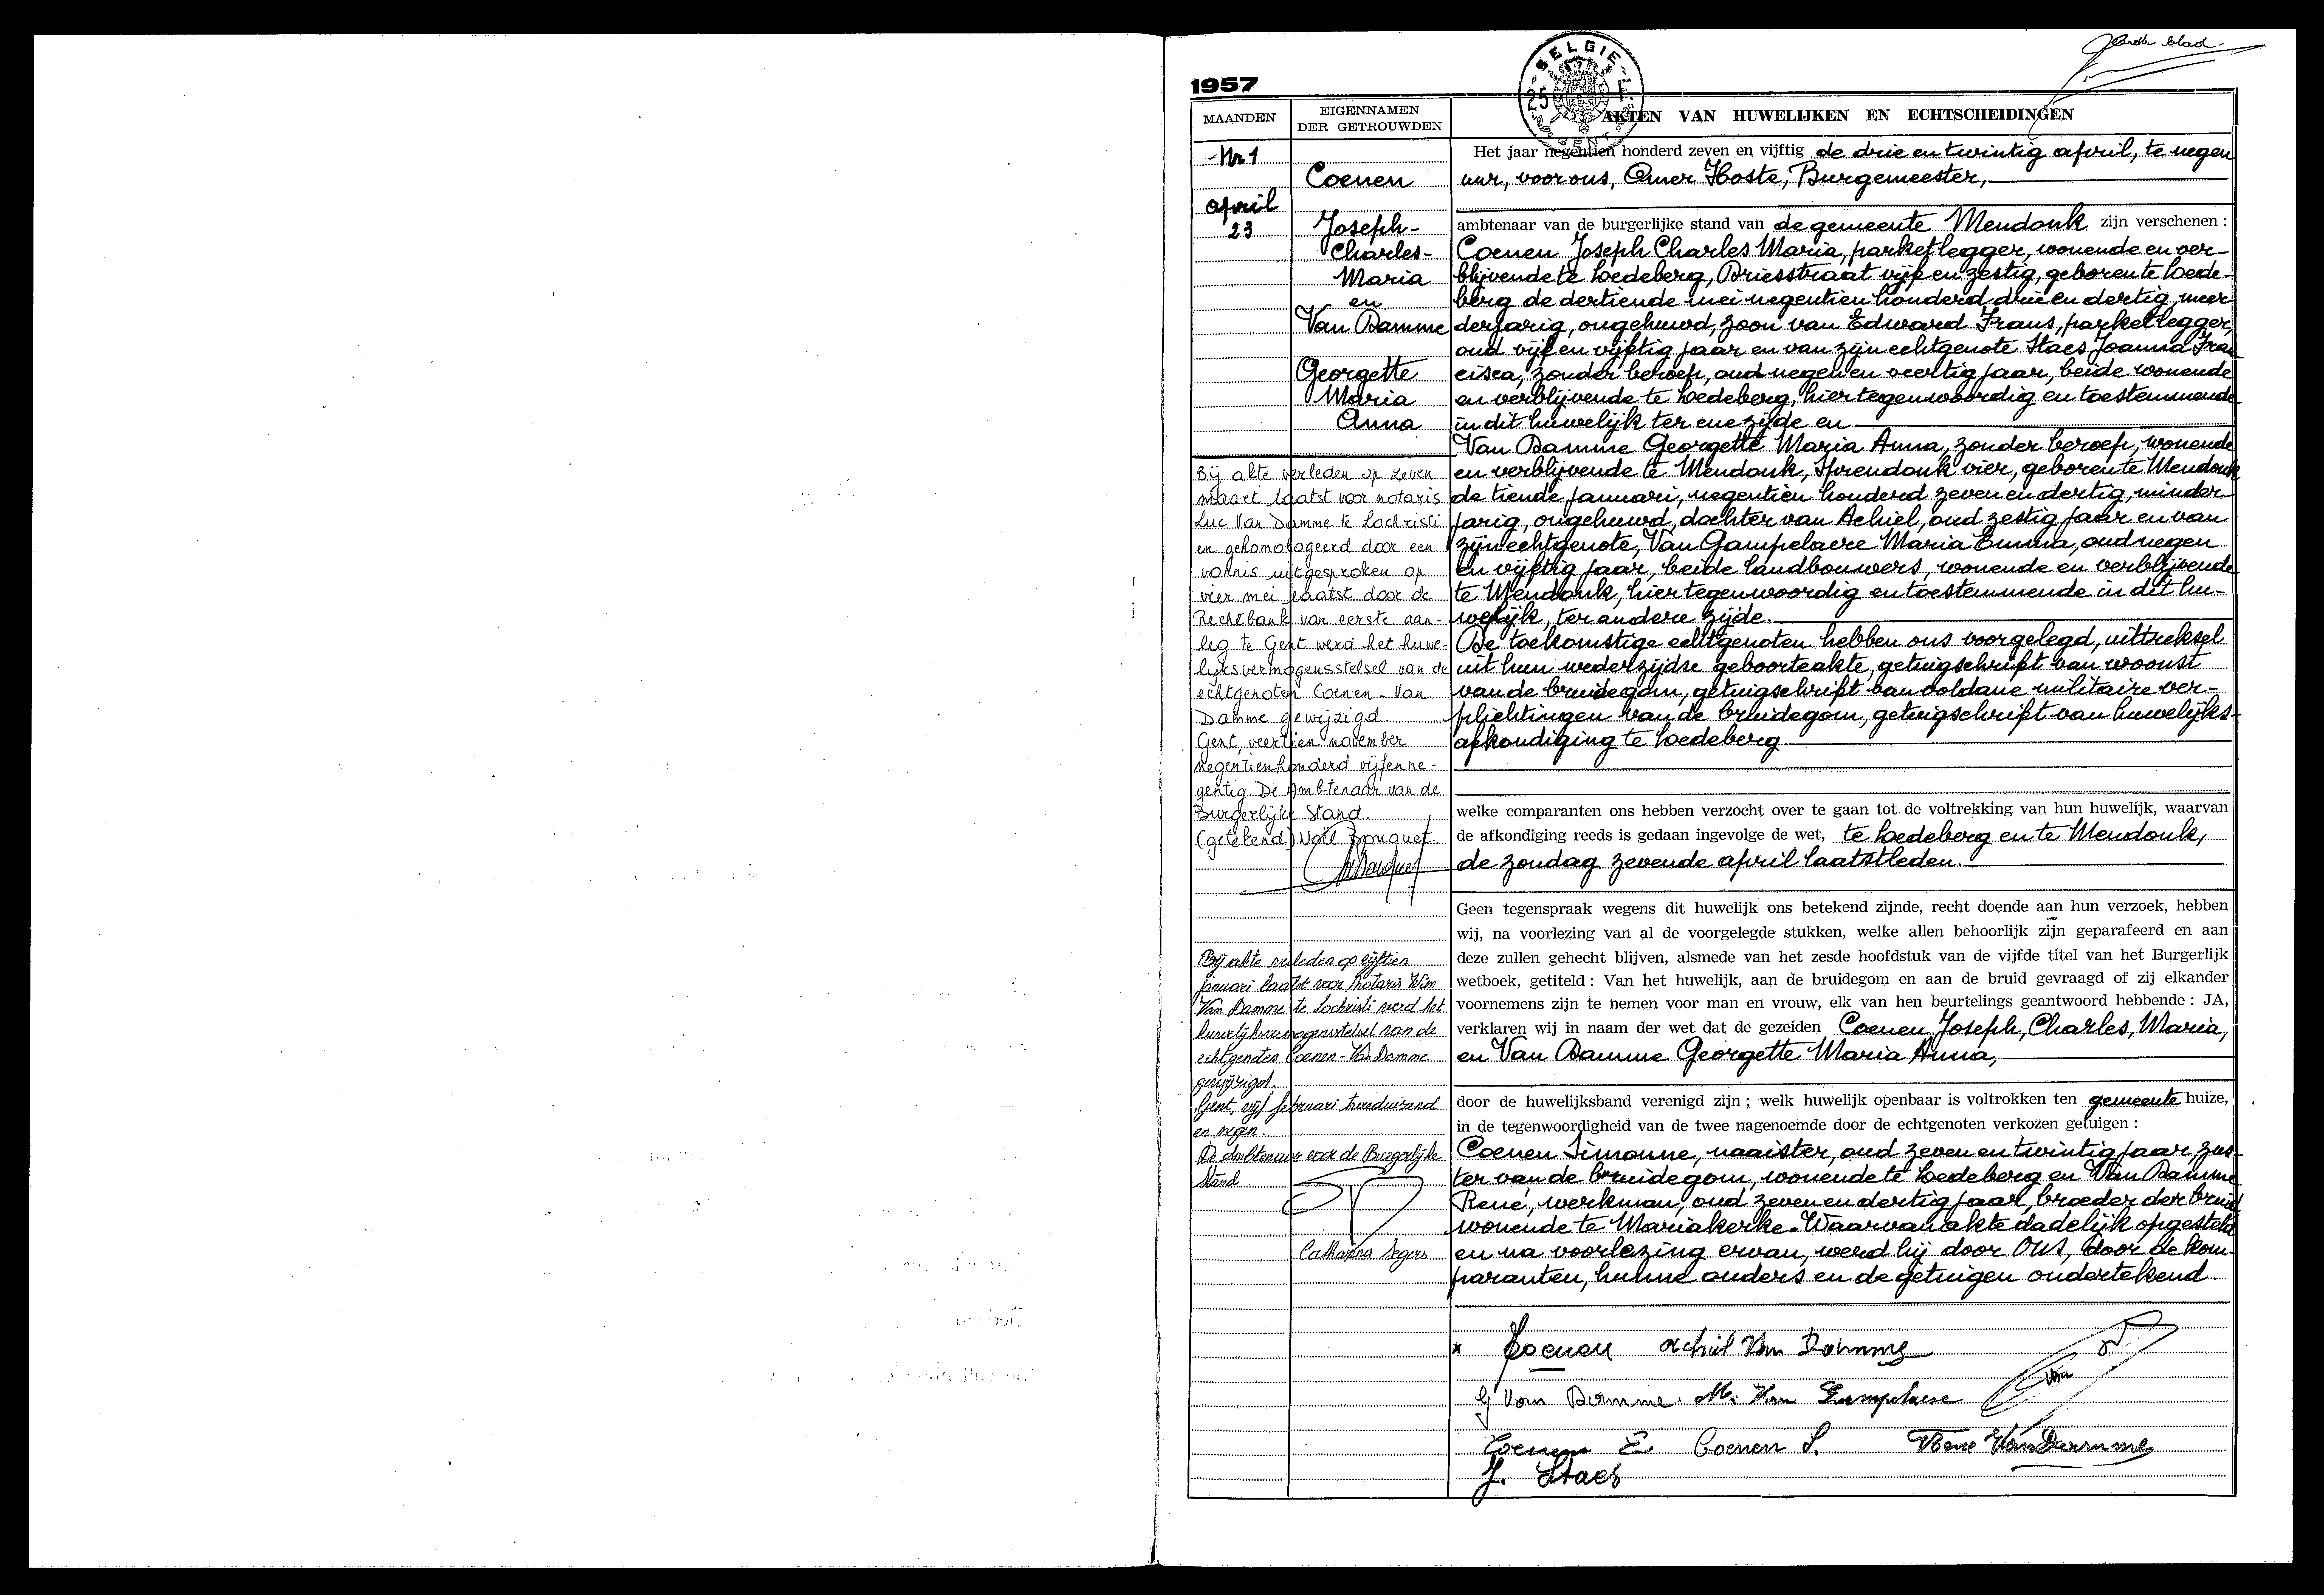 1957
BELGIE
25
GENT
blad
MAANDEN
EIGENNAMEN
DER GETROUWDEN
AKTEN VAN HUWELIJKEN EN ECHTSCHEIDINGEN
Nr 1
april
23
Coenen
Joseph-
Charles-
Maria
en
Van Damme
Georgette
Maria
Anna
Het jaar negentien honderd zeven en vijftig de drie en twintig april, te negen
uur, voor ons, Omer Hoste, Burgemeester,
ambtenaar van de burgerlijke stand van de gemeente Mendonk zijn verschenen :
Coenen Joseph Charles Maria, parketlegger, wonende en ver-
blijvende te Ledeberg, Briesstraat vijf en zestig, geboren te Lede-
berg de dertiende mei negentien honderd drie en dertig, meer
derjarig, ongehuwd, zoon van Edward Frans, parketlegger,
oud vijf en vijftig jaar en van zijn echtgenote Staes Joanna Fran
cisca, zonder beroep, oud negen en veertig jaar, beide wonende
en verblijvende te Ledeberg, hier tegenwoordig en toestemmende
in dit huwelijk ter ene zijde en
Van Damme Georgette Maria Anna, zonder beroep, wonende
en verblijvende te Mendonk, Sprendonk vier, geboren te Mendonk
de tiende januari, negentien honderd zeven en dertig, minder-
jarig, ongehuwd, dochter van Achiel, oud zestig jaar en van
zijn echtgenote, Van Gampelaere Maria Emma, oud negen
en vijftig jaar, beide landbouwers, wonende en verblijvende
te Mendonk, hier tegenwoordig en toestemmende in dit hu-
welijk, ter andere zijde.
De toekomstige echtgenoten hebben ons voorgelegd, uittreksel
uit hun wederzijdse geboorteakte, getuigschrift van woonst
van de bruidegom, getuigschrift van voldane militaire ver-
plichtingen van de bruidegom, getuigschrift van huwelijks-
afkondiging te Ledeberg.
welke comparanten ons hebben verzocht over te gaan tot de voltrekking van hun huwelijk, waarvan
de afkondiging reeds is gedaan ingevolge de wet, te Ledeberg en te Mendonk,
de zondag zevende april laatstleden.
Geen tegenspraak wegens dit huwelijk ons betekend zijnde, recht doende aan hun verzoek, hebben
wij, na voorlezing van al de voorgelegde stukken, welke allen behoorlijk zijn geparafeerd en aan
deze zullen gehecht blijven, alsmede van het zesde hoofdstuk van de vijfde titel van het Burgerlijk
wetboek, getiteld : Van het huwelijk, aan de bruidegom en aan de bruid gevraagd of zij elkander
voornemens zijn te nemen voor man en vrouw, elk van hen beurtelings geantwoord hebbende : JA,
verklaren wij in naam der wet dat de gezeiden Coenen Joseph, Charles, Maria,
en Van Damme Georgette Maria Anna,
door de huwelijksband verenigd zijn ; welk huwelijk openbaar is voltrokken ten gemeente huize,
in de tegenwoordigheid van de twee nagenoemde door de echtgenoten verkozen getuigen :
Coenen Simonne, naaister, oud zeven en twintig jaar, zus-
ter van de bruidegom, wonende te Ledeberg en Van Damme
René, werkman, oud zeven en dertig jaar, broeder der bruid
wonende te Mariakerke. Waarvan akte dadelijk opgesteld
en na voorlezing ervan, werd hij door ons, door de kom-
paranten, hunne ouders en de getuigen ondertekend.
Bij akte verleden op zeven
maart laatst voor notaris
Luc Van Damme te Lochristi
en gehomologeerd door een
vonnis uitgesproken op
vier mei laatst door de
Rechtbank van eerste aan-
leg te Gent werd het huwe-
lijksvermogensstelsel van de
echtgenoten Coenen - Van
Damme gewijzigd.
Gent, veertien november
negentienhonderd vijfenne-
gentig. De Ambtenaar van de
Burgerlijke Stand.
(getekend) Noël Bouquet
Bij akte verleden op vijftien
januari laatst voor Notaris Wim
Van Damme te Lochristi werd het
huwelijksvermogensstelsel van de
echtgenoten Coenen - Van Damme
gewijzigd.
Gent, vijf februari tweeduizend
en negen.
De ambtenaar voor de Burgerlijke
Stand
Catharina Segers
x Coenen Achiel Van Damme
G Van Damme M. Van Gampelaere
Coenen E Coenen S. René Van Damme
J. Staes